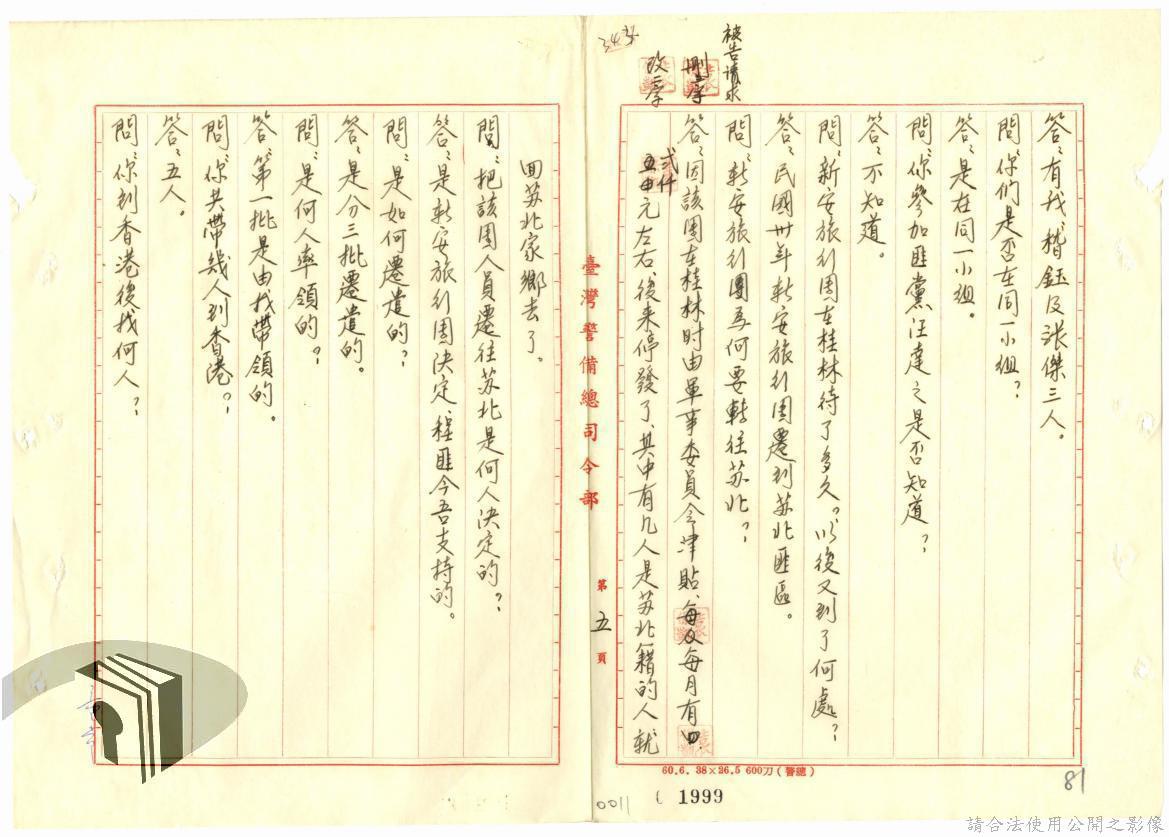 答:有我、嵇鈺及張傑三人。
問:你們是否在同一小組?
答:是在同一小組。
問:你參加匪黨汪達之是否知道?
答:不知道。
問:新安旅行團在桂林待了多久?以後又到了何處?
答:民國卅年新安旅行團遷到苏北匪區。
問:新安旅行團為何要轉往苏北?
被告請求
刪字
改二字
答:因該團在桂林时由軍事委員会津貼、每月有
弍仟
元左右、後来停發了、其中有几人是苏北籍的人就
回苏北家鄉去了。
問:把該團人員遷往苏北是何人決定的?
答:是新安旅行團決定、程匪今吾支持的。
問:是如何遷遣的?
答:是分三批遷遣的。
問:是何人率領的?
答:第一批是由我帶領的。
問:你共帶幾人到香港?
答:五人。
問:你到香港後找何人?
臺灣警備總司令部
第五頁
60.6. 38×26.5 600刀(警總)
343
0011
1999
81
請合法使用公開之影像